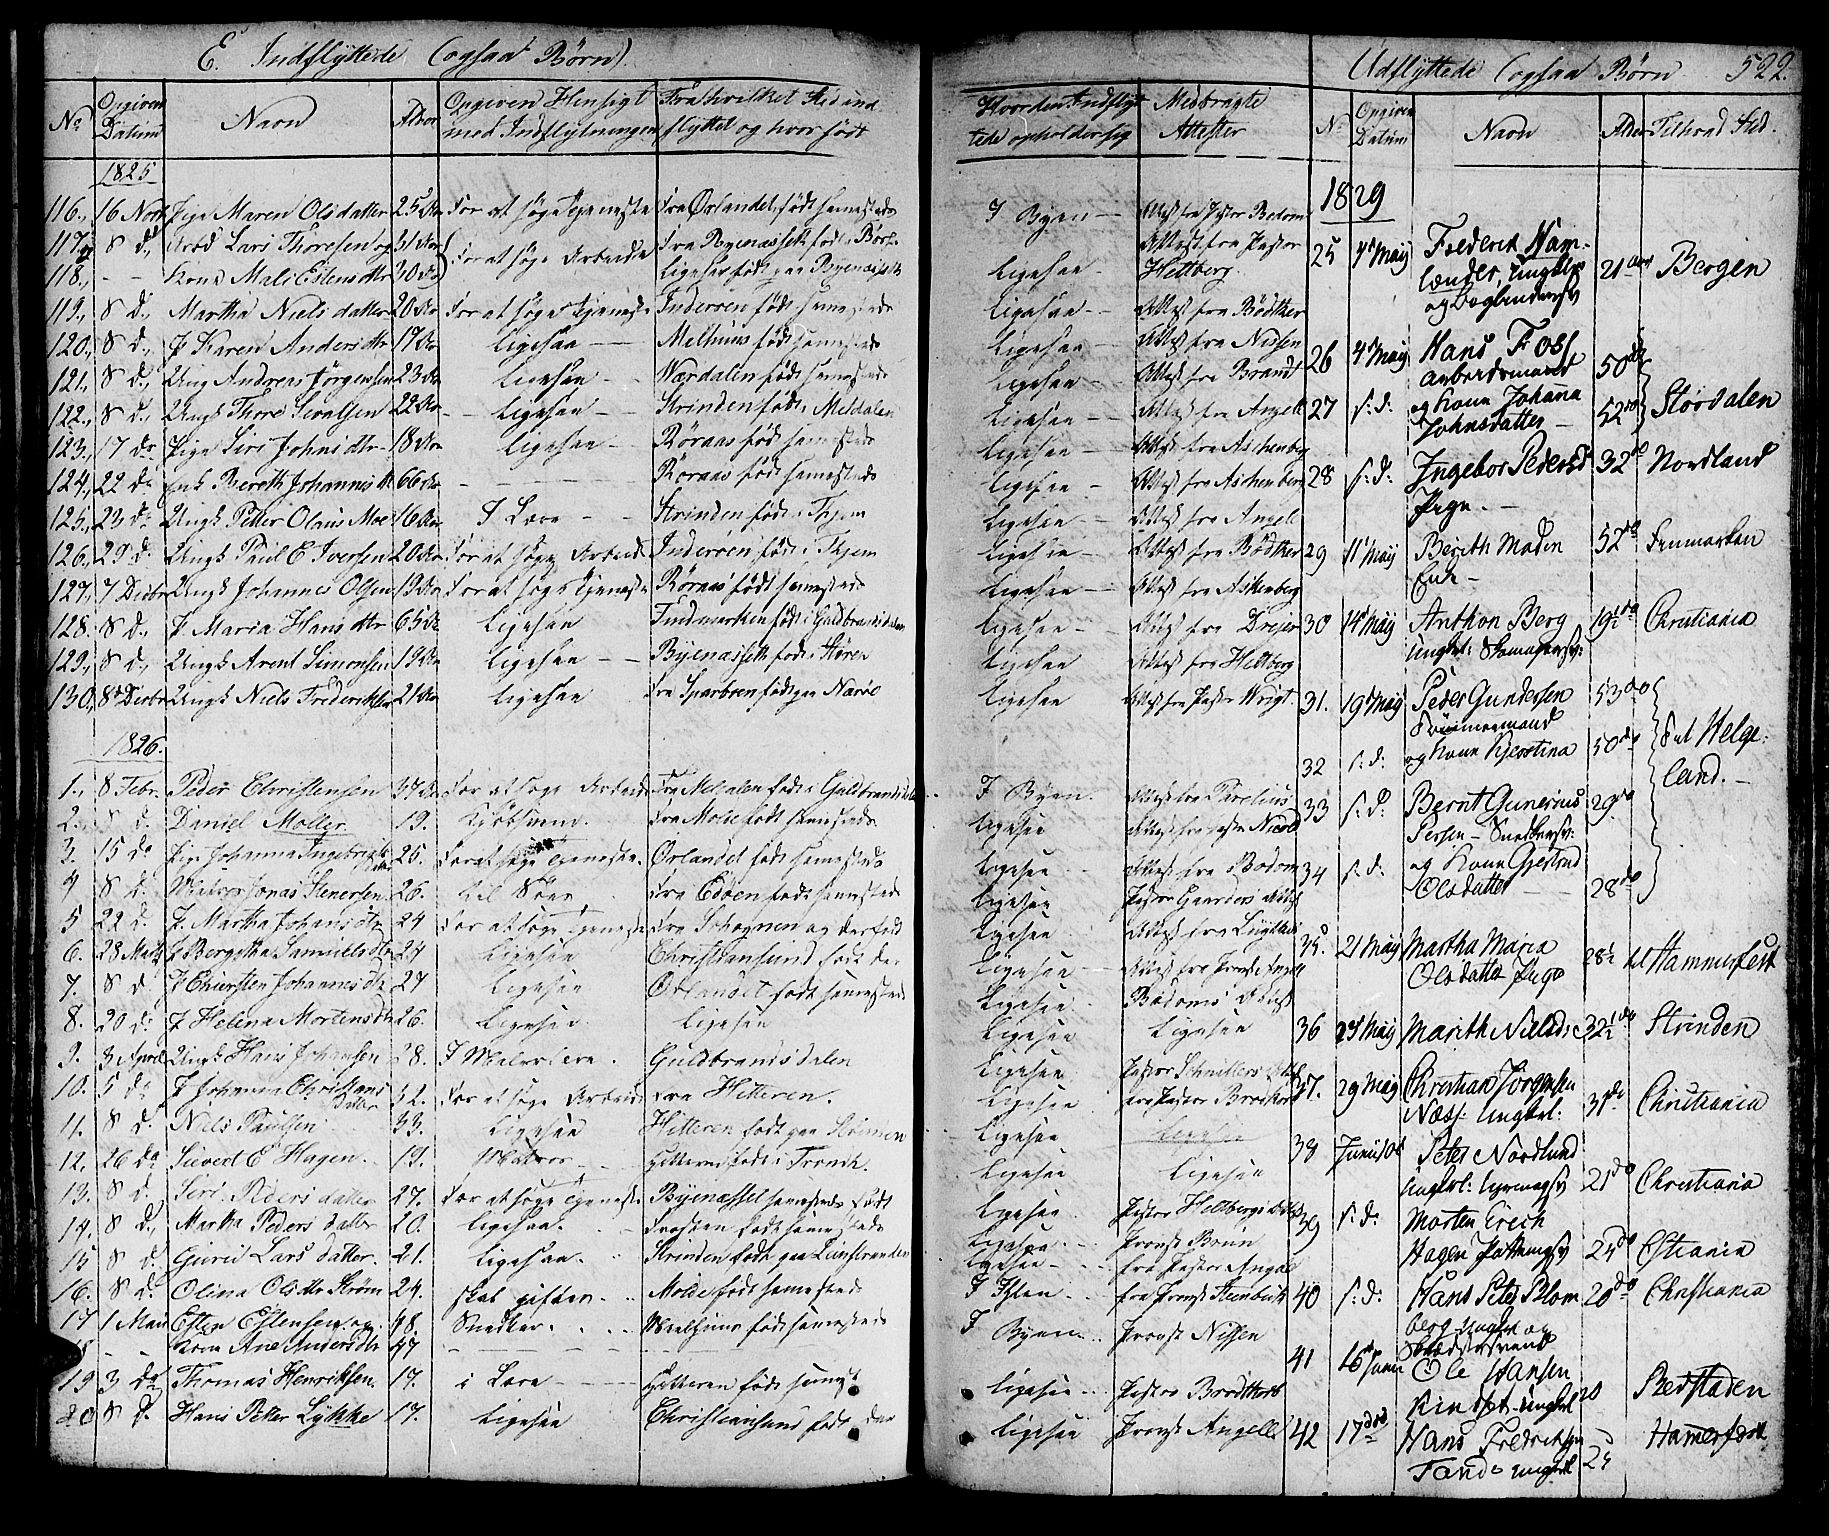 E. Indflyttede (ogsaa Børn).
No Opgiven Datum Navn Alder Opgiven Hensigt med Indflytningen Fra hvilket Sted indflyttet og hvor født
1825
116., 16 Novb Pige Maren Olsdatter 25 Aar For at søge Tjeneste Fra Ørlandet, født samesteds
117., S d., Arbd Lars Thoresen og 31 Aar For at søge Arbeide Fra Byenæsset født i Børs.
118., - - Kone Mali Estensdtr 30 Aar Ligesaa født paa Byenæsset
119., S d., Martha Niels datter 20 Aar For at søge Tjeneste Inderøen født samesteds
120., S d., P Karen Anders dtr 19 Aar Ligesaa Melhuus født samesteds
121., S d., Ung Andreas Jørgensen 23 Aar Ligesaa Værdalen født samesteds
122., S d., Ungk Thore Sivertsen 22 Aar Ligesaa Strinden født i Meldalen
123., 17 do Pige Siri Johns dtr 18 Aar Ligesaa Røraas født samesteds
124., 22 do Enk Bereth Johannis dtr 66 Aar Røraas født samesteds
125., 23 do Ungk Petter Olaus Moe 16 Aar I Lære Strinden født i Thjem
126., 29 d. Ungk Paul E Iversen 20 Aar For at søge Arbeide Inderøen født i Thjem
127., 7 Decbr Ungk Johannes Olsen 19 Aar For at søge Tjeneste Røraas født samesteds
128., S d., P Maria Hans dtr 65 Aar Ligesaa Findmarken født i Guldbrandsdalen
129., S d., Ungk Arent Simonsen 19 Aar Ligesaa Byenæsset født i Støren
130., 8 Decbr Ungk Niels Frederiksen 21 Aar Ligesaa Fra Sparboen født paa Narøe
1826.
1., 8 Febr. Peder Christensen 37 Aar For at søge Arbeide Fra Meldalen født i Guldbrandsdalen
2. S d. Daniel Møller 19. Kjøbsvend. Fra Molde født samesteds
3. 15 do Pige Johanna Ingebrigtsdatter 25. For at søge Tjeneste. Ørlandet født samesteds
4 S d. Matros Jonas Stenersen 26. til Søes Fra Edøen født samesteds
5 22 d. P. Martha Johans dtr 24 For at søge Tjeneste Fra Sohognen og der født
6. 28 Marts P Bergitha Samuels dtr 24 Ligesaa Christiansund født der
7. S d. P Chiersten Johannes dtr 27 Ligesaa Ørlandet født samesteds
8. 20 d. P Helena Mortens dtr 26. Ligesaa. Ligesaa
9. 3 April Ungk Hans Johansen 28. I Malerlære. Guldbrandsdalen
10. 5 do P Johanna Christiansdatter 32. For at søge Arbeide Fra Hitteren.
11. S d. Niels Paulsen 33. Ligesaa Hitteren født paa Strinden
12. 26 do Sivert E Hagen. 19. Matros Hitteren født i Trondh.
13. S d. Siri Peders datter 27. For at søge Tjeneste Byenæsset samesteds født
14. S d., Martha Peders datter 20. Ligesaa. Frosten født samesteds
15 S d. Guriel Lars datter. 21. Ligesaa. Strinden født paa Leinstranden
16. S d. Olina Ols dtr Strøm 24. skal giftes. Molde født samesteds
17 1 Mai Esten Estensen og 48. Snedker. Meelhuus født samesteds
18 - - Kone Ane Anders dtr 47
19 3 do Thomas Henriksen. 17. i Lære Hitteren født samest
20 S d. Hans Petter Lykke 17. Ligesaa Christiansund født der
Hvor den Indflyttede opholder sig Medbragte Attester
I Byen Attest fra Pastor Bodom
Ligesaa Attest fra Pastor Heltberg.
Ligesaa Attest fra Bødtker
Ligesaa Attest fra Nissen
Ligesaa Attest fra Brandt
Ligesaa Attest fra Angell
Ligesaa Attest fra Aschenberg
Ligesaa Attest fra Aschenberg
Ligesaa Attest fra Angell
Ligesaa Attest fra Bødtker
Ligesaa Attest fra Askenberg
Ligesaa Attest fra Drejer
Ligesaa Attest fra Heltberg
Ligesaa Attest fra Pastor Wrigt.
I Byen. Attest fra Parelius
Ligesaa Attest fra Pastor
Ligesaa Attest fra Bodom
Ligesaa Pastor Gaarders Attest
Ligesaa Attest fra
Ligesaa Attest fra Provst Angell
Ligesaa Bodoms Attest
Ligesaa Ligesaa
Ligesaa Pastor Schnitlers Attest
Ligesaa fra Pastor Brodtkorb
Ligesaa Ligesaa
Ligesaa Ligesaa
Ligesaa Pastor Heltbergs Attest
Ligesaa Provst Brun
Ligesaa fra Pastor Angell
I Ihlen fra Provst Steenbuch
I Byen Provst Nissen
Ligesaa Pastor Brodtkorb
Ligesaa Provst Angell
Udflyttede (ogsaa Børn 522.
No Opgiven Datum Navn Alder Til hvad Sted.
1829
25 4 May Frederik Hamlænder, Ungkl og Bogbindersv 21 Aar Bergen
26 4 May Hans Foss Arbeidsmand 50 do
27 s: d: og Kone Johanna Johnsdatter 52 do Størdalen
28 s: d: Ingebor Pedersd Pige. 32 do Nordland
29 11 May Berith Moden Enke 52 do Finmarken
30 14 May Anthon Berg Ungkl: Skomagersv: 19½ do Christiania
31. 19 May Peder Gundersen Tømmermand 53 do
32 s: d: og Kone Kjerstina 50 do til Helgeland.
33 s: d: Bernt Gunerius Persen Snedkersv: 29 do
34 s: d: og Kone Gjertrud Olsdatter 28 do
35. 21 May Martha Maria Olsdatter Pige 28½ til Hammerfest
36 24 May Marith Nielsd: 32½ do Strinden
37. 29 May Christian Jørgensen Næss: Ungkl: 31 do Christiania
38 Junii Peter Nordlund Ungkrl: 21 do Christiania
39 s: d: Morten Erich Hagen Pottemagsv 24 do Cstiania
40 s: d: Hans Peter Blomberg Ungkl og Skrædersvend 20 do Christiania
41 16 Junii Ole Hansen Ungkl 20 Bedstaden
42 17 do Hans Fredriksen Tande Ungkl 25 Hamerfest